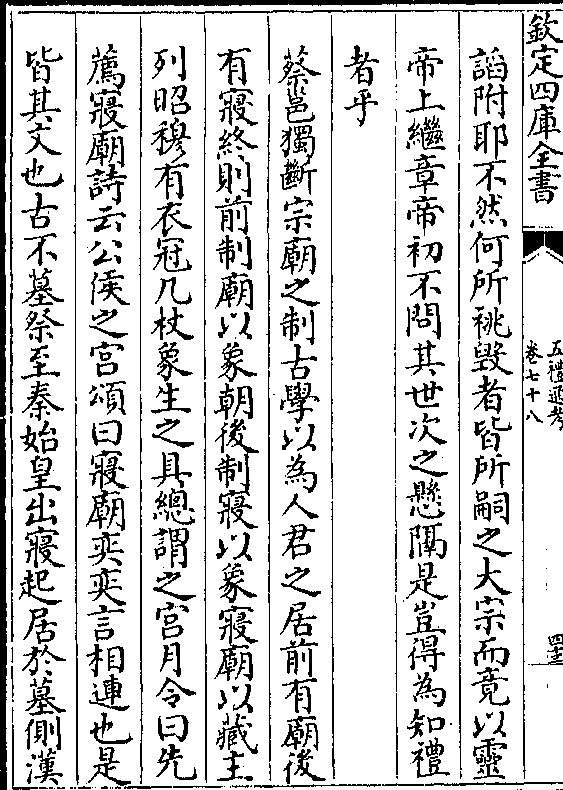 欽定四庫全書
五禮通考
卷七十八
四十三
諂附耶不然何所祧毀者皆所嗣之大宗而竟以靈
帝上繼章帝初不問其世次之懸隔是豈得為知禮
者乎
蔡邕獨斷宗廟之制古學以為人君之居前有廟後
有寢終則前制廟以象朝後制寢以象寢廟以藏主
列昭穆有衣冠几杖象生之具總謂之宮月令曰先
薦寢廟詩云公侯之宮頌曰寢廟奕奕言相連也是
皆其文也古不墓祭至秦始皇出寢起居於墓側漢